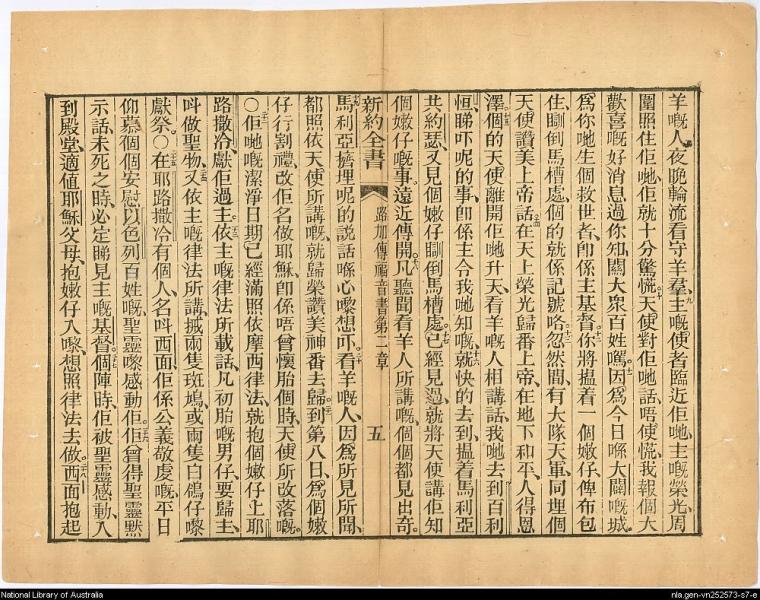 羊嘅人、夜晚輪流看守羊羣、主嘅使者臨近佢哋、主嘅榮光、周
圍照住佢哋、佢就十分驚慌、天使對佢哋話、唔使慌、我報個大
歡喜嘅好消息過你知、關大衆百姓嘅、因爲今日喺大闢嘅城、
爲你哋生個救世者、卽係主基督、你將搵着一個嫩仔、俾布包
住、瞓倒馬槽處、個的就係記號咯、忽然間、有大隊天軍、同埋個
天使讚美上帝話、在天上榮光歸番上帝、在地下和平、人得恩
澤、個的天使離開佢哋升天、看羊嘅人相講話、我哋去到百利
恒、睇吓呢的事、卽係主令我哋知嘅、就快的去到、搵着馬利亞
共約瑟、又見個嫩仔瞓倒馬槽處、已經見過、就將天使講佢知
個嫩仔嘅事、遠近傳開、凡聽聞看羊人所講嘅、個個都見出奇。
新約全書 路加傳福音書第二章 五
馬利亞擠埋呢的說話喺心嚟想吓、看羊嘅人、因爲所見所聞、
都照依天使所講嘅、就歸榮讚美神番去歸、到第八日、爲個嫩
仔行割禮、改佢名做耶穌、卽係唔曾懷胎個時、天使所改落嘅。
○佢哋嘅潔淨日期、已經滿、照依摩西律法、就抱個嫩仔上耶
路撒冷、獻佢過主、依主嘅律法所載話、凡初胎嘅男仔、要歸主、
呌做聖物、又依主嘅律法所講、搣兩隻斑鳩、或兩隻白鴿仔嚟
獻祭。○在耶路撒冷有個人、名呌西面、佢係公義敬虔嘅、平日
仰慕個個安慰以色列百姓嘅、聖靈嚟感動佢、佢曾得聖靈默
示話、未死之時、必定睇見主嘅基督、個陣時、佢被聖靈感動、入
到殿堂、適値耶穌父母、抱嫩仔入嚟、想照律法去做、西面抱起
National Library of Australia
nla.gen-vn252573-s7-e